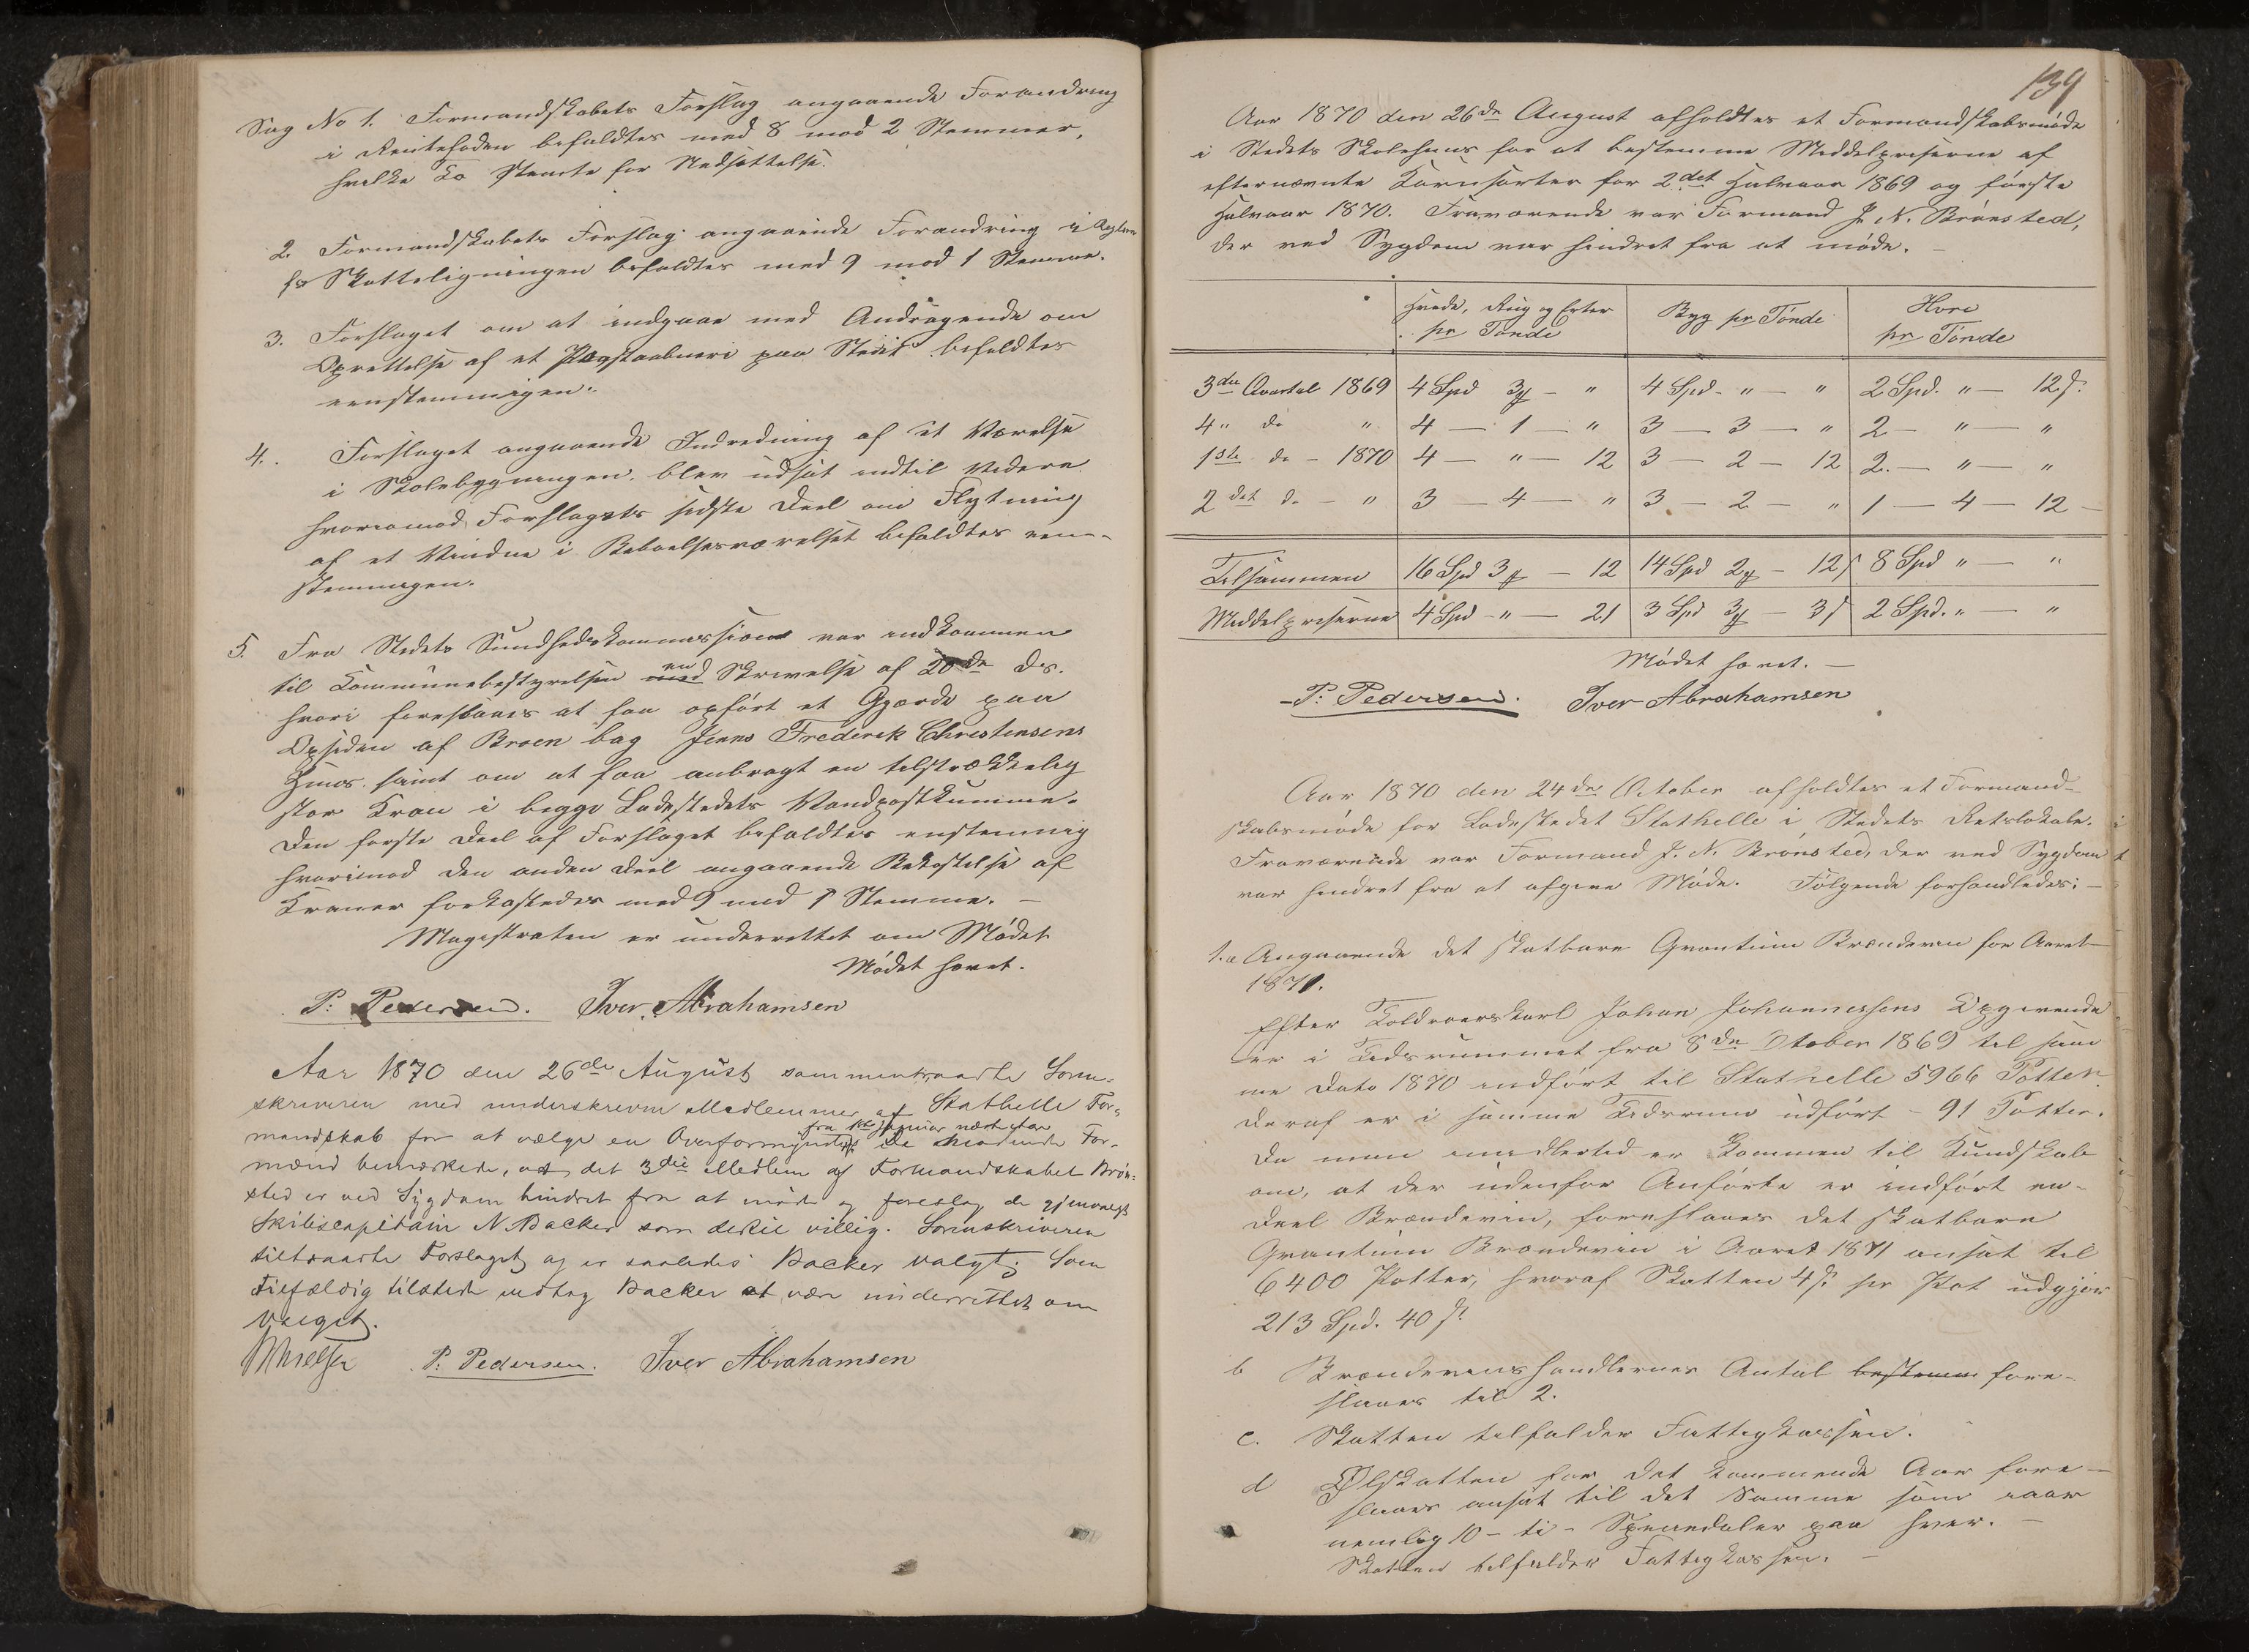 Sag No 1. Formandskabets Forslag angaaende Forandring
i Rentefoden befaldtes med 8 mod 2 Stemmer,
hvilke to stemte for Nedsættelse.
2. Formandskabets Forslag angaaende Forandring i Reglerne
for Skatteligningen befaldtes med 9 mod 1 Stemme.
3. Forslaget om at indgaae med Andragende om
Oprettelse af et Postaabneri paa Stedet befaldtes
eenstemmigen.
4. Forslaget angaaende Indredning af et Værelse
i Skolebygningen blev udsat indtil Videre
hvorimod Forslagets sidste Deel om Flytning
af et Vindue i Beboelsesværelset befaldtes een-
stemmigen.
5. Fra Stedets Sundhedskommission var indkommen
til Kommunebestyrelsen en Skrivelse af 20de ds.
hvori foreslaaes at faa opført et Gjærde paa
Opsiden af Broen bag Jenns Frederik Christensens
Huus samt om at faa anbragt en tilstrækkelig
stor Kran i begge Ladestedets Vandpostkumme.
Den første Deel af Forslaget befaldtes enstemmig
hvorimod den anden Deel angaaende Bekostelse af
Kraner forkastedes med 9 mod 1 Stemme. —
Magistraten er underrettet om Mødet
Mødet hævet.
P. Pedersen. Iver Abrahamsen
Aar 1870 den 26de August sammentraadte Soren-
skriveren med underskrevne Medlemmer af Stathelle For-
mandskab for at vælge en Overformynder
fra 1ste Januar næste Aar
De mødende For-
mænd bemærkede, at det 3die Medlem af Formandskabet Brøn-
sted er ved Sygdom hindret fra at møde og foreslog de gjenvalgt
Skibscapitain N. Backer som dertil villig. Sorenskriveren
tiltraadte Forslaget og er saaledes Backer valgt; Som
tilfældig tilstede vedtog Backer at være underrettet om
Valget.
P. Pedersen. Iver Abrahamsen
139
Aar 1870 den 26de August afholdtes et Formandskabsmøde
i Stedets Skolehuus for at bestemme Middelpriserne af
efternævnte Kornsorter for 2det Halvaar 1869 og første
Halvaar 1870. Fraværende var Formand J. N. Brønsted,
der ved Sygdom var hindret fra at møde. —
Hvede, Rug og Erter pr Tønde Byg pr Tønde Havre pr Tønde
3die Qvartal 1869 4 Spd 3 — " 4 Spd — " — " 2 Spd. " — 12 s.
4" do " 4 — 1 — " 3 — 3 — " 2 — " — "
1ste do — 1870 4 — " — 12 3 — 2 — 12 2 — " — "
2det do — " 3 — 4 — " 3 — 2 — " 1 — 4 — 12 —
Tilsammen 16 Spd 3 — 12 14 Spd 2 — 12 s 8 Spd " — "
Middelpriserne 4 Spd — " — 21 3 Spd 3 — 3 s 2 Spd. " — "
Mødet hævet. —
P. Pedersen. Iver Abrahamsen
Aar 1870 den 24de October afholdtes et Formand-
skabsmøde for Ladestedet Stathelle i Stedets Retslokale.
Fraværende var Formand J. N. Brønsted, der ved Sygdom
var hindret fra at afgive Møde. Følgende forhandledes: —
1. a Angaaende det skatbare Qvantum Brændeviin for Aaret
1871.
Efter Toldroerskarl Johan Johannessens Opgivende
er i Tidsrummet fra 8de October 1869 til sam
me Dato 1870 indført til Stathelle 5966 Potter.
Deraf er i samme Tidsrum udført — 91 Potter.
Da man imidlertid er kommen til Kundskab
om, at der udenfor Anførte er indført en-
Deel Brændeviin, foreslaaes det skatbare
Qvantum Brændeviin i Aaret 1871 ansat til
6400 Potter, hvoraf Skatten 4 s pr Pot udgjør
213 Spd. 40 s.
b Brændeviinshandlernes Antal bestemm fore-
slaaes til 2.
c. Skatten tilfalder Fattigkassen.
d Ølskatten for det kommende Aar fore-
slaaes ansat til det Samme som iaar
nemlig 10 — ti — Speciedaler paa hver. —
Skatten tilfalder Fattigkassen. —